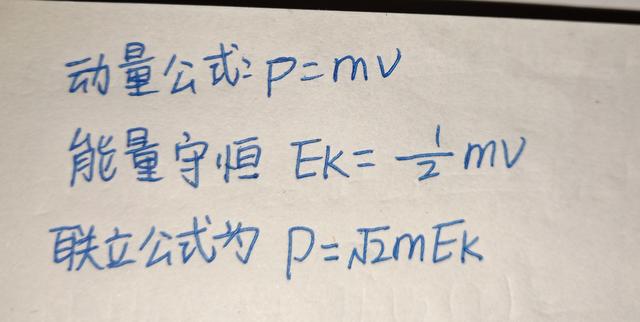 动量公式: P=mv
能量守恒 Ek=1/2 mv
联立公式为 P=√2mEk